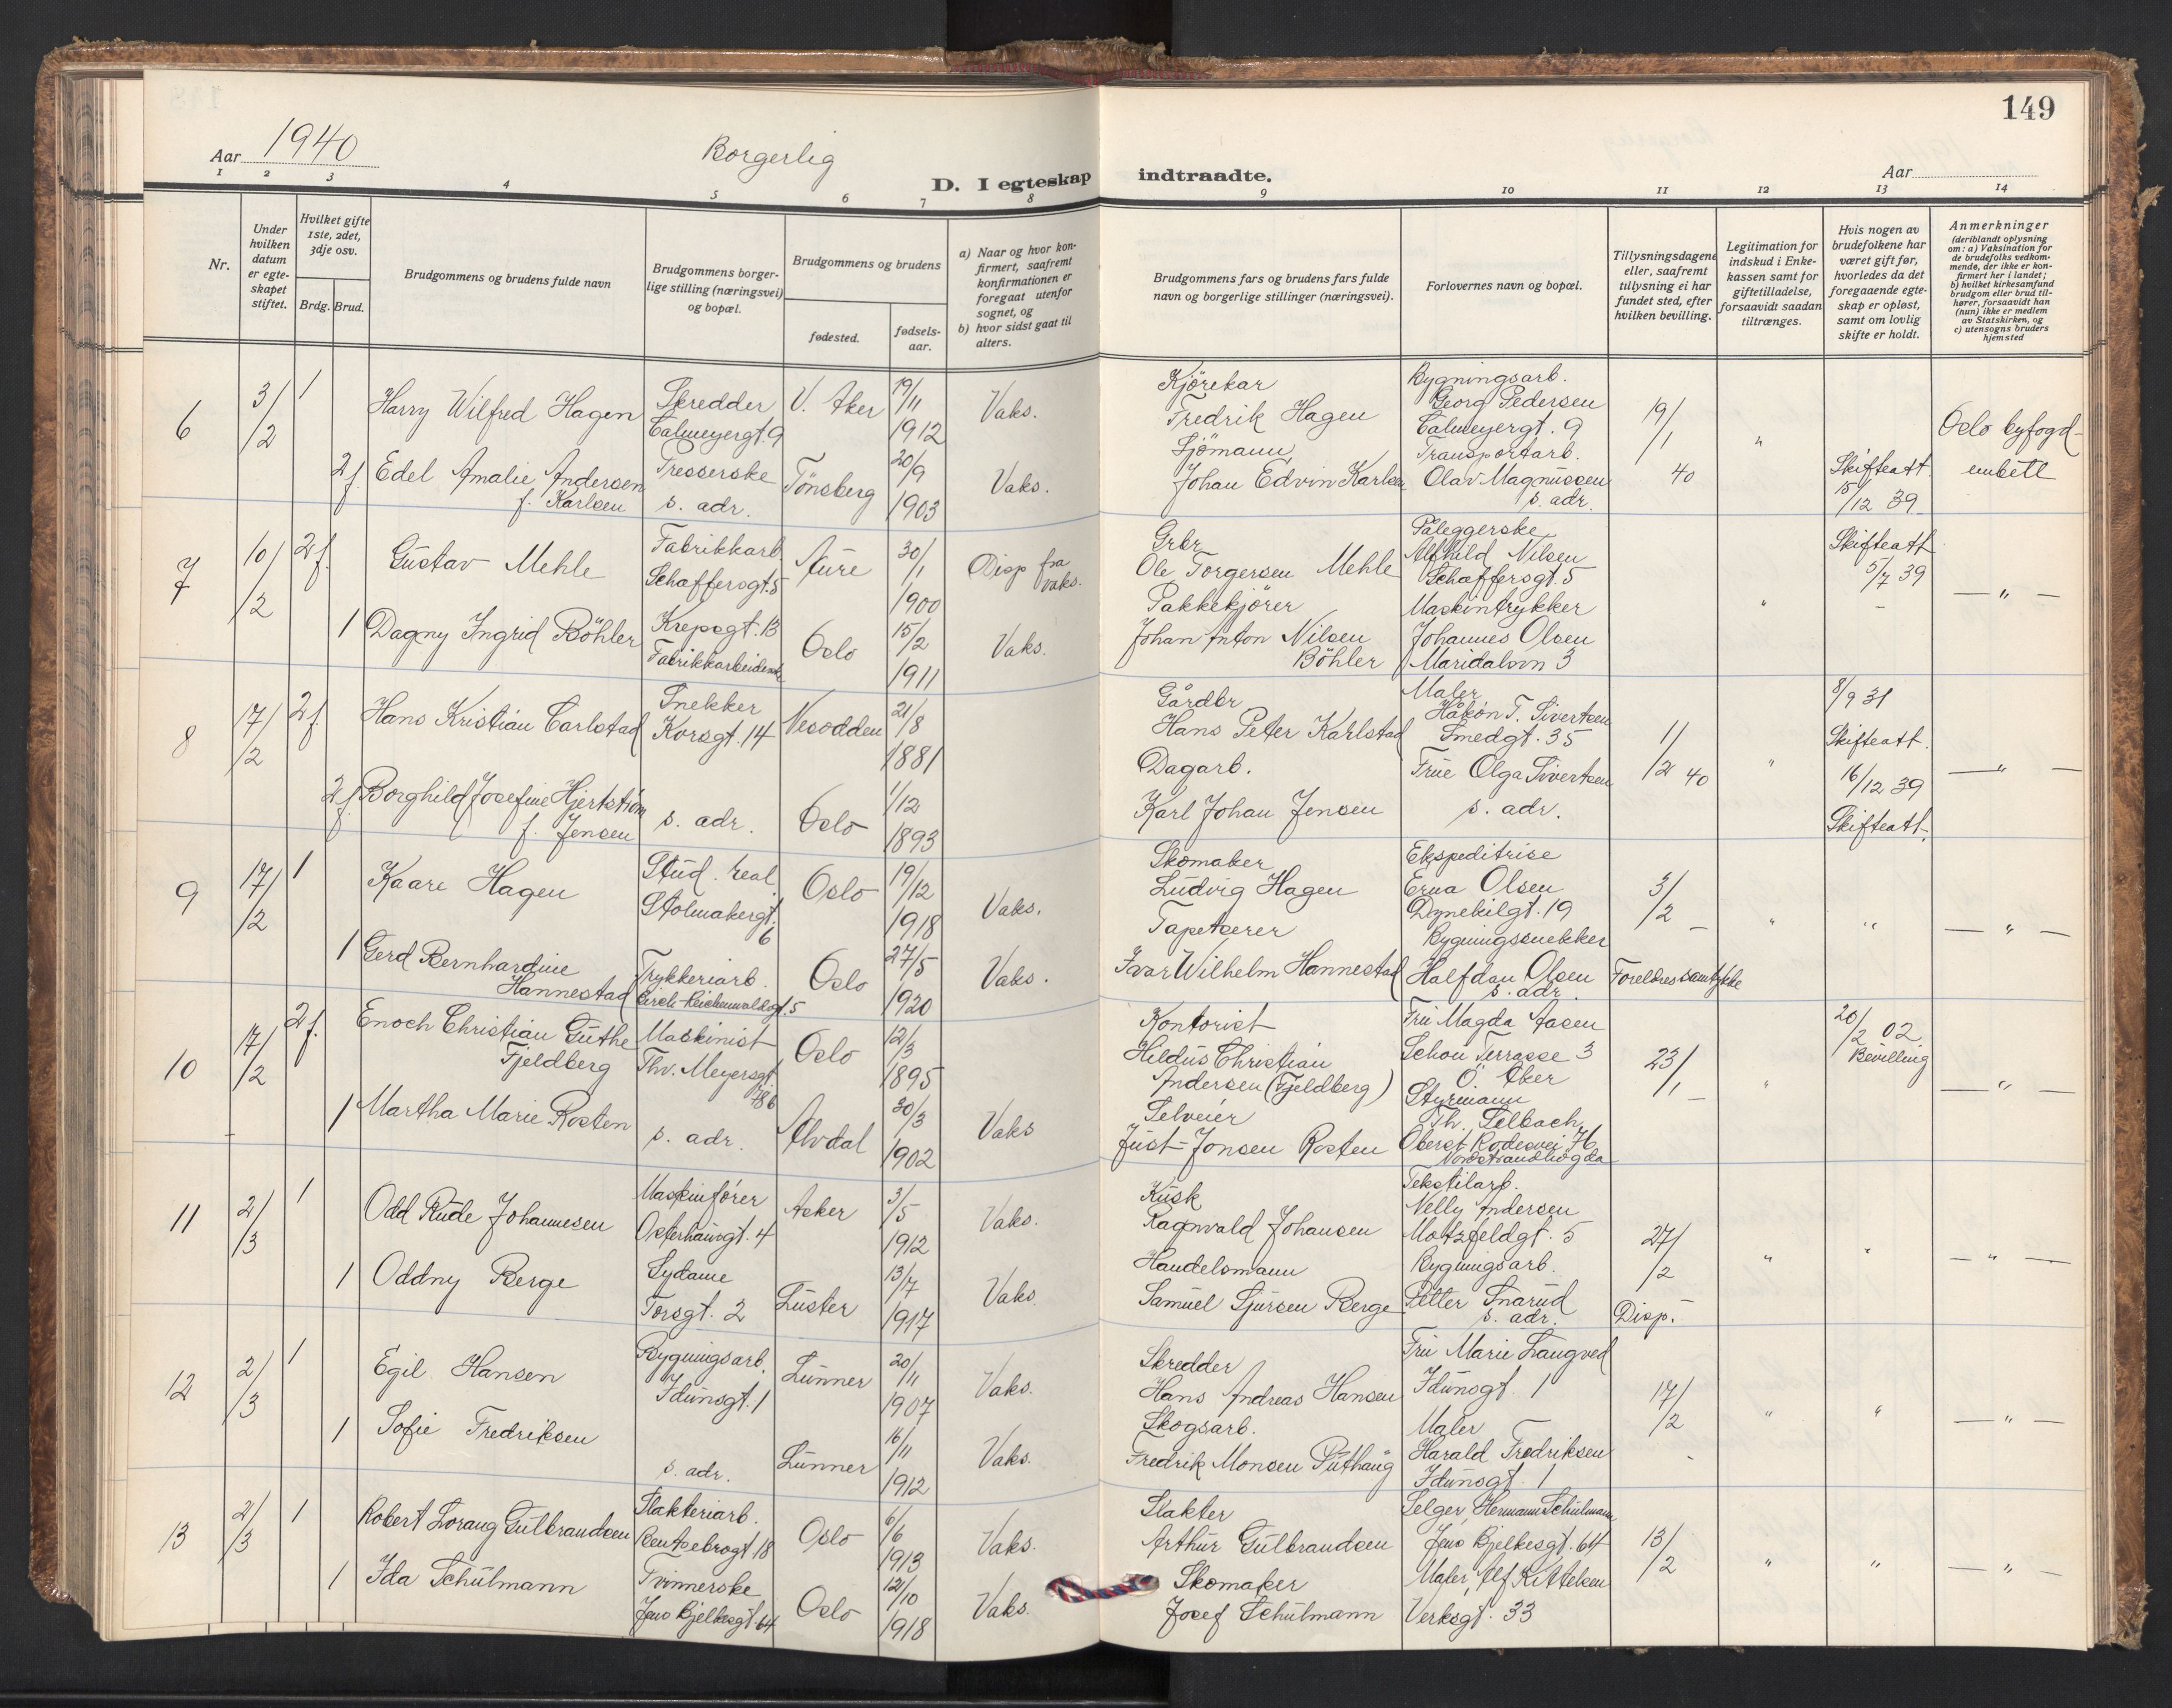 149
Aar 1940
Borgerlig
D. I egteskap indtraadte.
Aar
1 2 3 4 5 6 7 8 9 10 11 12 13 14
Nr.
Under hvilken datum er egteskapet stiftet.
Hvilket gifte 1ste, 2det, 3dje osv.
Brdg. Brud.
Brudgommens og brudens fulde navn
Brudgommens borgerlige stilling (næringsvei) og bopæl.
Brudgommens og brudens
fødested.
fødselsaar.
a) Naar og hvor konfirmert, saafremt konfirmationen er foregaat utenfor sognet, og
b) hvor sidst gaat til alters.
Brudgommens fars og brudens fars fulde navn og borgerlige stillinger (næringsvei).
Forlovernes navn og bopæl.
Tillysningsdagene eller, saafremt tillysning ei har fundet sted, efter hvilken bevilling.
Legitimation for indskud i Enkekassen samt for giftetilladelse, forsaavidt saadan tiltrænges.
Hvis nogen av brudefolkene har været gift før, hvorledes da det foregaaende egteskap er opløst, samt om lovlig skifte er holdt.
Anmerkninger (deriblandt oplysning om: a) Vaksination for de brudefolks vedkommende, der ikke er konfirmert her i landet; b) hvilket kirkesamfund brudgom eller brud tilhører, forsaavidt han (hun) ikke er medlem av Statskirken, og c) utensogns bruders hjemsted
6 3/2 1 Harry Wilfred Hagen Skredder Calmeyergt. 9 V. Aker 19/11 1912 Vaks. Kjörekar Fredrik Hagen Bygningsarb. Georg Pedersen Calmeyergt. 9 19/1 40 " Oslo byfogdembett
2 f. Edel Amalie Andersen f. Karlsen Tresserske s. adr. Tönsberg 20/9 1903 Vaks. Sjömann Johan Edvin Karlsen Transportarb. Olav Magnussen s. adr. Skifteatt. 15/12 39
7 10/2 2 f. Gustav Mehle Fabrikkarb Schaffersgt. 5 Aure 30/1 1900 Disp fra vaks. Grbr Ole Torgersen Mehle Påleggerske Alfhild Nilsen Schaffersgt. 5 " Skifteatt 5/7 39 — " —
1 Dagny Ingrid Böhler Krepsgt. 13 Fabrikkarbeiderske Oslo 15/2 1911 Vaks. Pakkekjører Johan Anton Nilsen Böhler Maskintrykker Johannes Olsen Maridalsvn 3
8 17/2 2 f. Hans Kristian Carlstad Snekker Korsgt. 14 Nesodden 21/8 1881 Gårdbr Hans Peter Karlstad Maler Håkon T. Sivertsen Smedgt. 35 11/2 40 " 8/9 31 Skifteatt. — " —
2 f. Borghild Josefine Hjertström f. Jensen s. adr. Oslo 1/12 1893 Dagarb. Karl Johan Jensen Frue Olga Sivertsen s. adr. 16/12 39 Skifteatt.
9 17/2 1 Kaare Hagen Stud. real Stolmakergt. 6 Oslo 19/12 1918 Vaks. Skomaker Ludvig Hagen Ekspeditrise Erna Olsen Dynekilgt. 19 3/2 — " " — " —
1 Gerd Bernhardine Hannestad Trykkeriarb. Birch-Reichenwaldsgt. 5 Oslo 27/5 1920 Vaks. Tapetserer Ivar Wilhelm Hannestad Bygningssnekker Halfdan Olsen s. adr. Foreldres samtykke
10 17/2 2 f. Enoch Christian Guthe Fjeldberg Maskinist Thv. Meyersgt. Oslo 12/3 1895 Kontorist Hildus Christian Andersen (Fjeldberg) Fru Magda Aasen Schou Terrasse 3 Ö. Aker 23/1 — " 20/2 02 Bevilling — " —
1 Martha Marie Rosten s. adr Alvdal 30/3 1902 Vaks Selveier Just Jonsen Rosten Styrmann Th. Selbach Oberst Rodesvei 76 Nordstrandhøgda
11 2/3 1 Odd Rude Johannesen Maskinfører Osterhausgt. 4 Asker 3/5 1912 Vaks. Kusk Ragnvald Johansen Tekstilarb. Nelly Andersen Motzfeldgt. 5 27/2 Disp. " " — " —
1 Oddny Berge Sydame Torsgt. 2 Luster 13/7 1917 Vaks. Handelsmann Samuel Sjursen Berge Bygningsarb. Petter Snarud s. adr.
12 2/3 1 Egil Hansen Bygningsarb. Idunsgt. 1 Lunner 20/11 1907 Vaks. Skredder Hans Andreas Hansen Fru Marie Langved Idunsgt. 1 17/2 " " — " —
1 Sofie Fredriksen s. adr. Lunner 16/11 1912 Vaks. Skogsarb. Fredrik Monsen Puthaug Maler Harald Fredriksen Idunsgt. 1
13 2/3 1 Robert Lorang Gulbrandsen Slakteriarb. Bentsebrogt 18 Oslo 6/6 1913 Vaks. Slakter Arthur Gulbrandsen Selger, Hermann Schulmann Jens Bjelkesgt. 64 13/2 " " — " —
1 Ida Schulmann Tvinnerske Jens Bjelkesgt 64 Oslo 12/10 1918 Vaks. Skomaker Josef Schulmann Maler, Alf Kittelsen Verksgt. 33